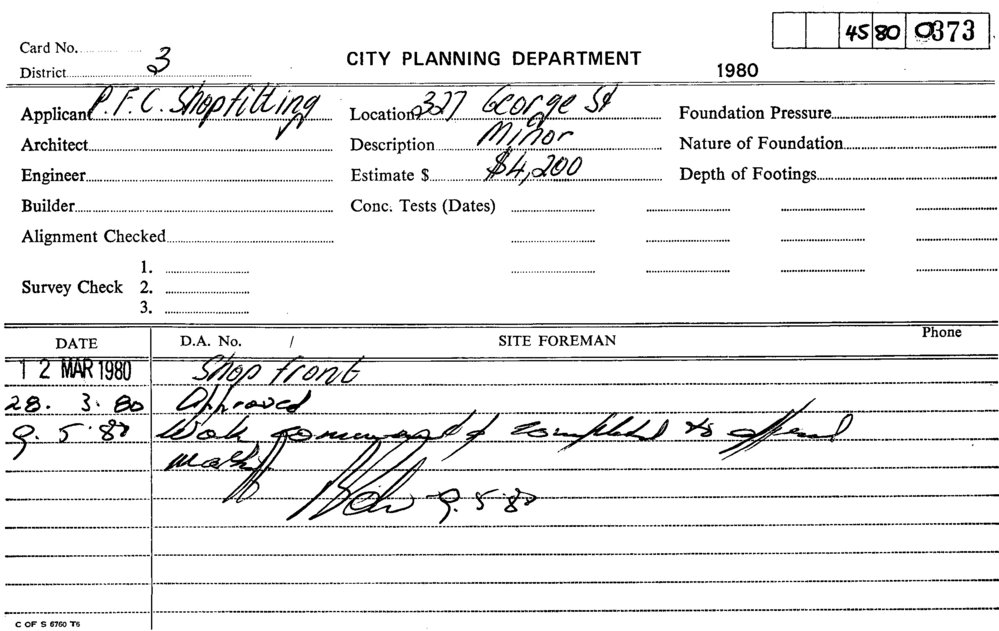 45 80 0373
Card No.
District 3
CITY PLANNING DEPARTMENT
1980
Applicant P.F.C. Shopfitting Location 327 George St Foundation Pressure
Architect Description Minor Nature of Foundation
Engineer Estimate $ $4,200 Depth of Footings
Builder Conc. Tests (Dates)
Alignment Checked
1.
Survey Check 2.
3.
DATE D.A. No. / SITE FOREMAN Phone
12 MAR 1980 Shop front
28. 3. 80 Approved
9. 5. 80 Work commenced & completed to
9. 5. 80
C OF S 6760 T6